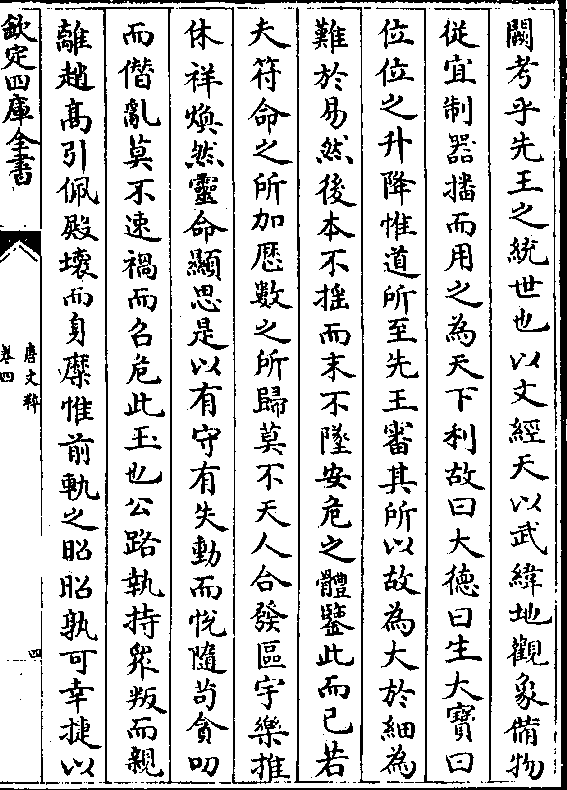 闕考乎先王之統世也以文經天以武緯地觀象備物
從宜制器播而用之為天下利故曰大德曰生大寶曰
位位之升降惟道所至先王審其所以故為大於細為
難於易然後本不摇而末不墜安危之體鑒此而已若
夫符命之所加歴數之所歸莫不天人合發區宇樂推
休祥煥然靈命顯思是以有守有失動而悅隨茍貪叨
而僭亂莫不速禍而召危此玉也公路執持衆叛而親
離趙髙引佩殿壊而身糜惟前軌之昭昭孰可幸捷以
欽定四庫全書
唐文粹
卷四
四